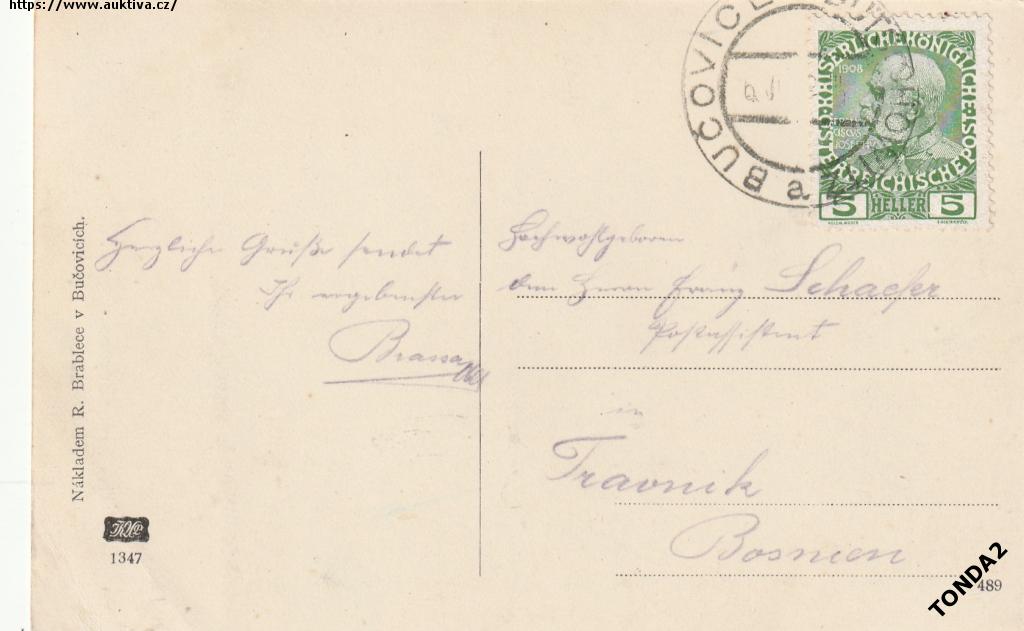 https://www.auktiva.cz/
BUČOVICE BUT a
KAISERLICHE KÖNIGLICHE
ÖSTERREICHISCHE POST
1908
5 HELLER 5
Herzliche Grüße sendet
Ihr ergebenster
Brassa
Hochwohlgeboren
dem Herrn Franz Schaefer
Postassistent
in
Travnik
Bosnien
Nákladem R. Brablece v Bučovicích.
1347
489
TONDA2